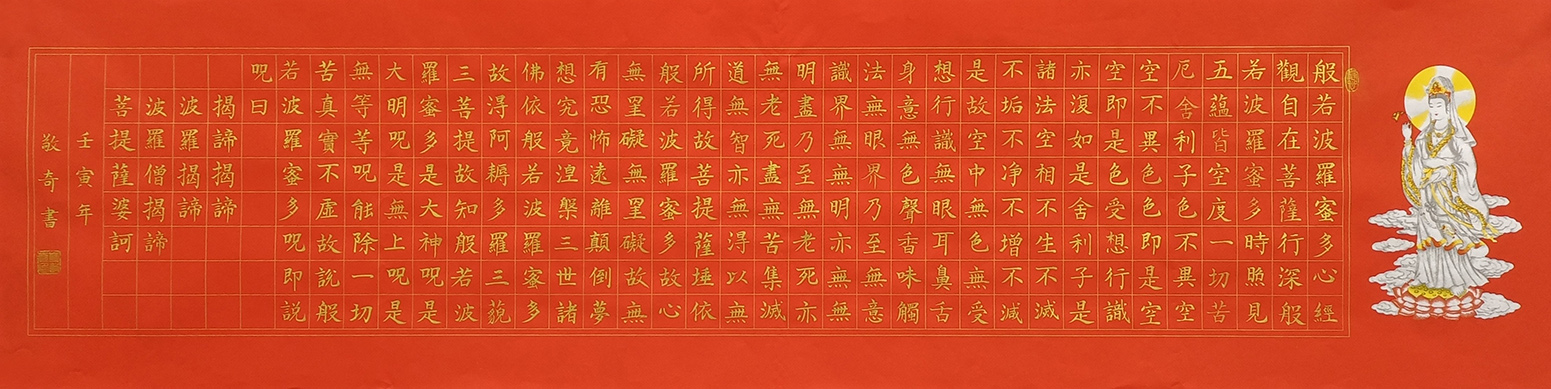 般若波羅蜜多心經
觀自在菩薩行深般
若波羅蜜多時照見
五蘊皆空度一切苦
厄舍利子色不異空
空不異色色即是空
空即是色受想行識
亦復如是舍利子是
諸法空相不生不滅
不垢不净不增不減
是故空中無色無受
想行識無眼耳鼻舌
身意無色聲香味觸
法無眼界乃至無意
識界無無明亦無無
明盡乃至無老死亦
無老死盡無苦集滅
道無智亦無得以無
所得故菩提薩埵依
般若波羅蜜多故心
無罣礙無罣礙故無
有恐怖遠離顛倒夢
想究竟涅槃三世諸
佛依般若波羅蜜多
故得阿耨多羅三藐
三菩提故知般若波
羅蜜多是大神呪是
大明呪是無上呪是
無等等呪能除一切
苦真實不虛故說般
若波羅蜜多呪即說
呪曰
揭諦揭諦
波羅揭諦
波羅僧揭諦
菩提薩婆訶
壬寅年
敬奇書